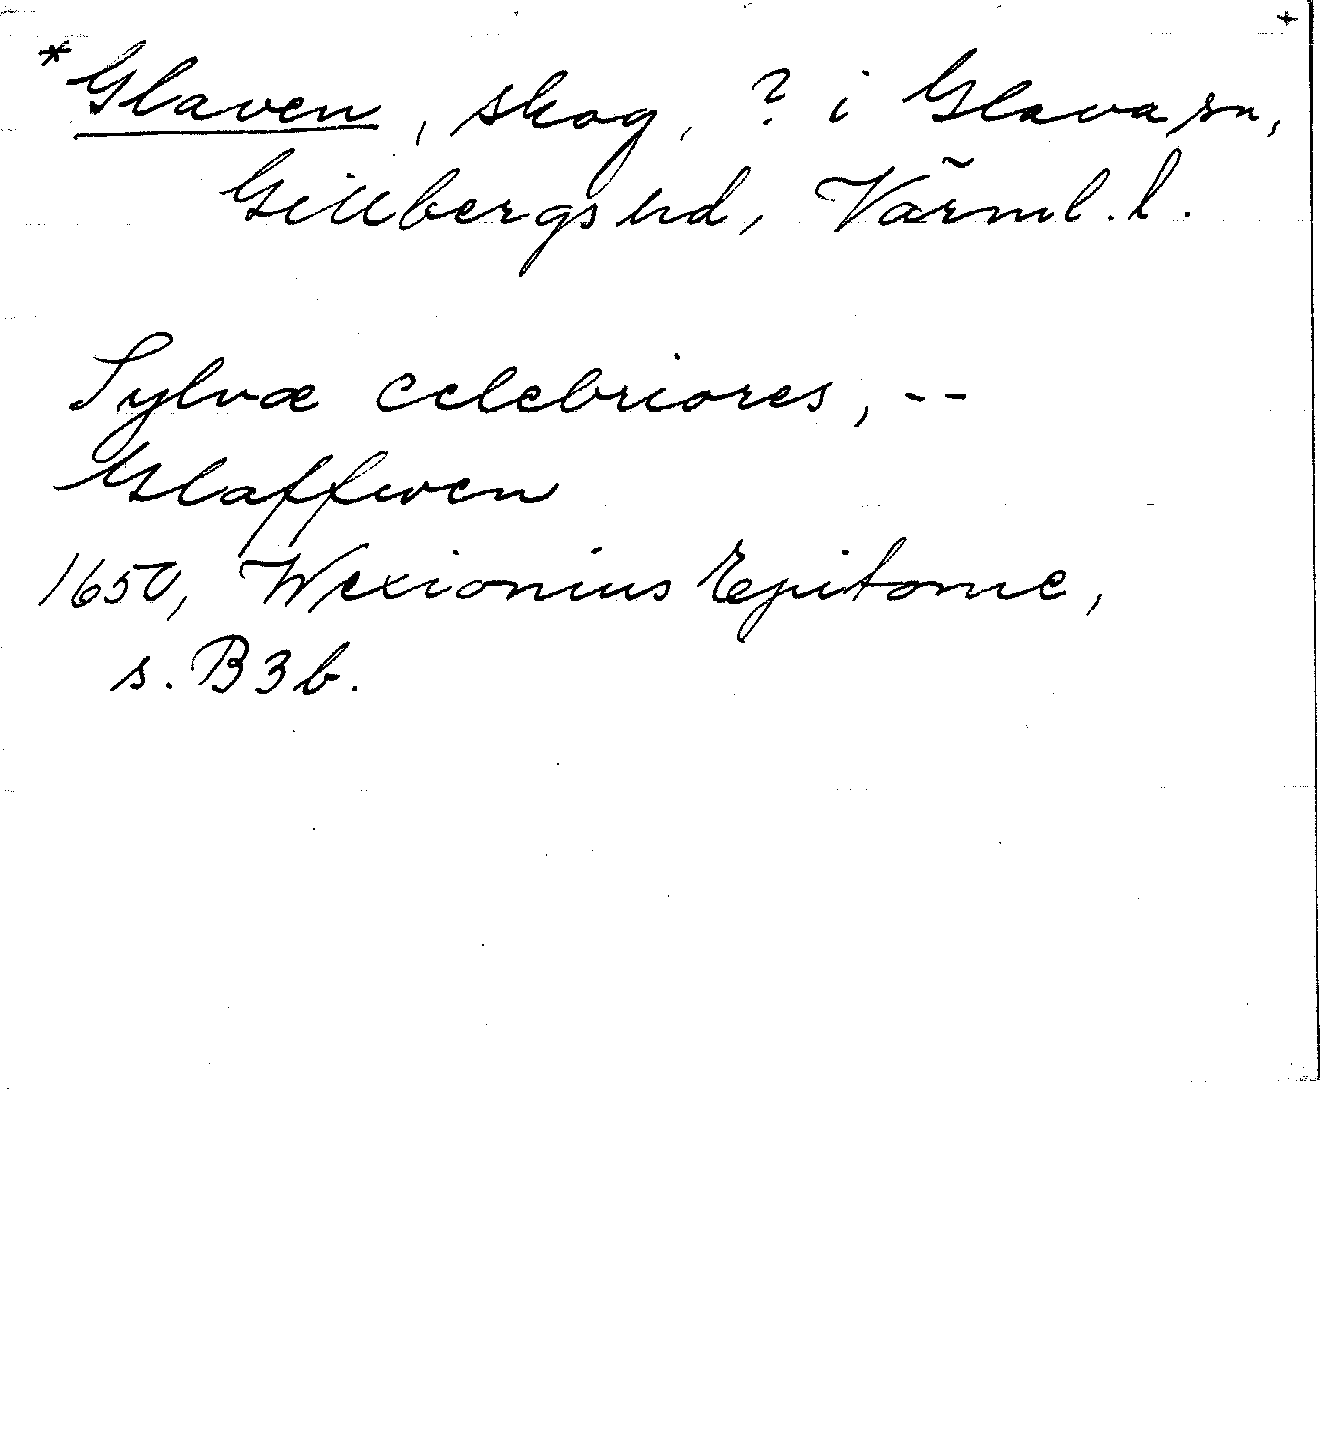 +
*Glaven, skog, ? i Glava sn,
Gillbergs hd, Värml. l.
Sylvæ celebriores, --
Glaffwen
1650, Wexionius Epitome,
s. B3b.